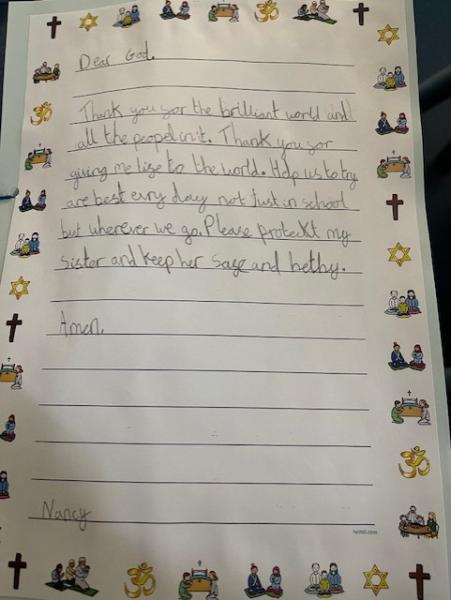 Dear God,
Thank you for the brilliant world and
all the peopel in it. Thank you for
giving me life to the world. Help us to try
are best evry day not just in school
but wherever we go. Please protekt my
sister and keep her safe and helthy.
Amen.
Nancy
twinkl.com